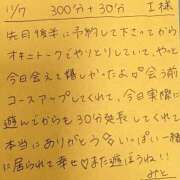 11/7 300分+30分 I様
先月後半に予約して下さってから
オキニトークでやりとりしていて、やっと
今日会えて嬉しかったよ♡会う前
コースアップしてくれて、今日実際に
遊んでからも30分延長してくれて
ありがとう♡いっぱい一緒
に居られて幸せ♡また遊ぼうね!!
みと